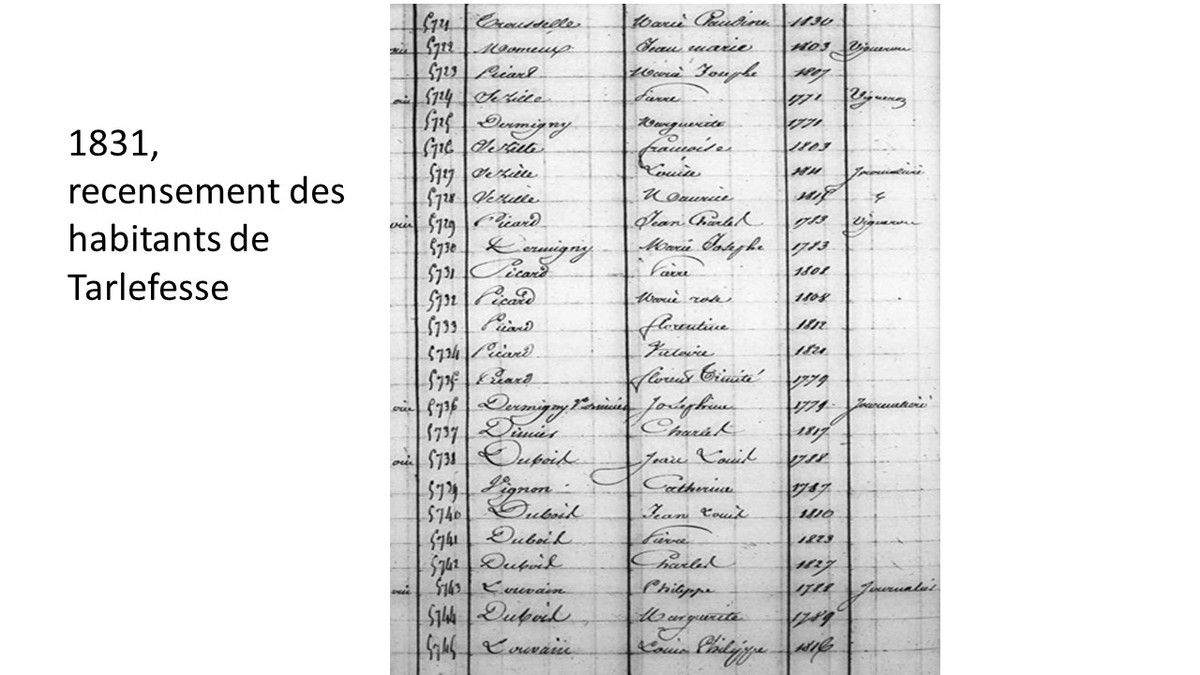 1831,
recensement des
habitants de
Tarlefesse
5721 Trousselle Marie Pauline 1830
5722 Momeux Jean marie 1803 Vigneron
5723 Picard Marie Josephe 1807
5724 Sezille Pierre 1771 Vigneron
5725 Dermigny Marguerite 1771
5726 Sezille françoise 1803
5727 Sezille Louise 1811
5728 Sezille Maurice
5729 Picard Jean Charles 1783 Vigneron
5730 Dermigny Marie Josephe 1783
5731 Picard Pierre 1808
5732 Picard Marie rose 1808
5733 Picard florentine 1812
5734 Picard Victoire 1821
5735 Picard florent Trinité 1779
5736 Dermigny Joséphine 1779
5737 Charles 1817
5738 Dubois Jean Louis 1788
5739 Vignon Catherine 1787
5740 Dubois Jean Louis 1810
5741 Dubois Pierre 1823
5742 Dubois Charles 1827
5743 Louvain Philippe 1788
5744 Dubois Marguerite 1789
5745 Louvain Louis Philippe 1816